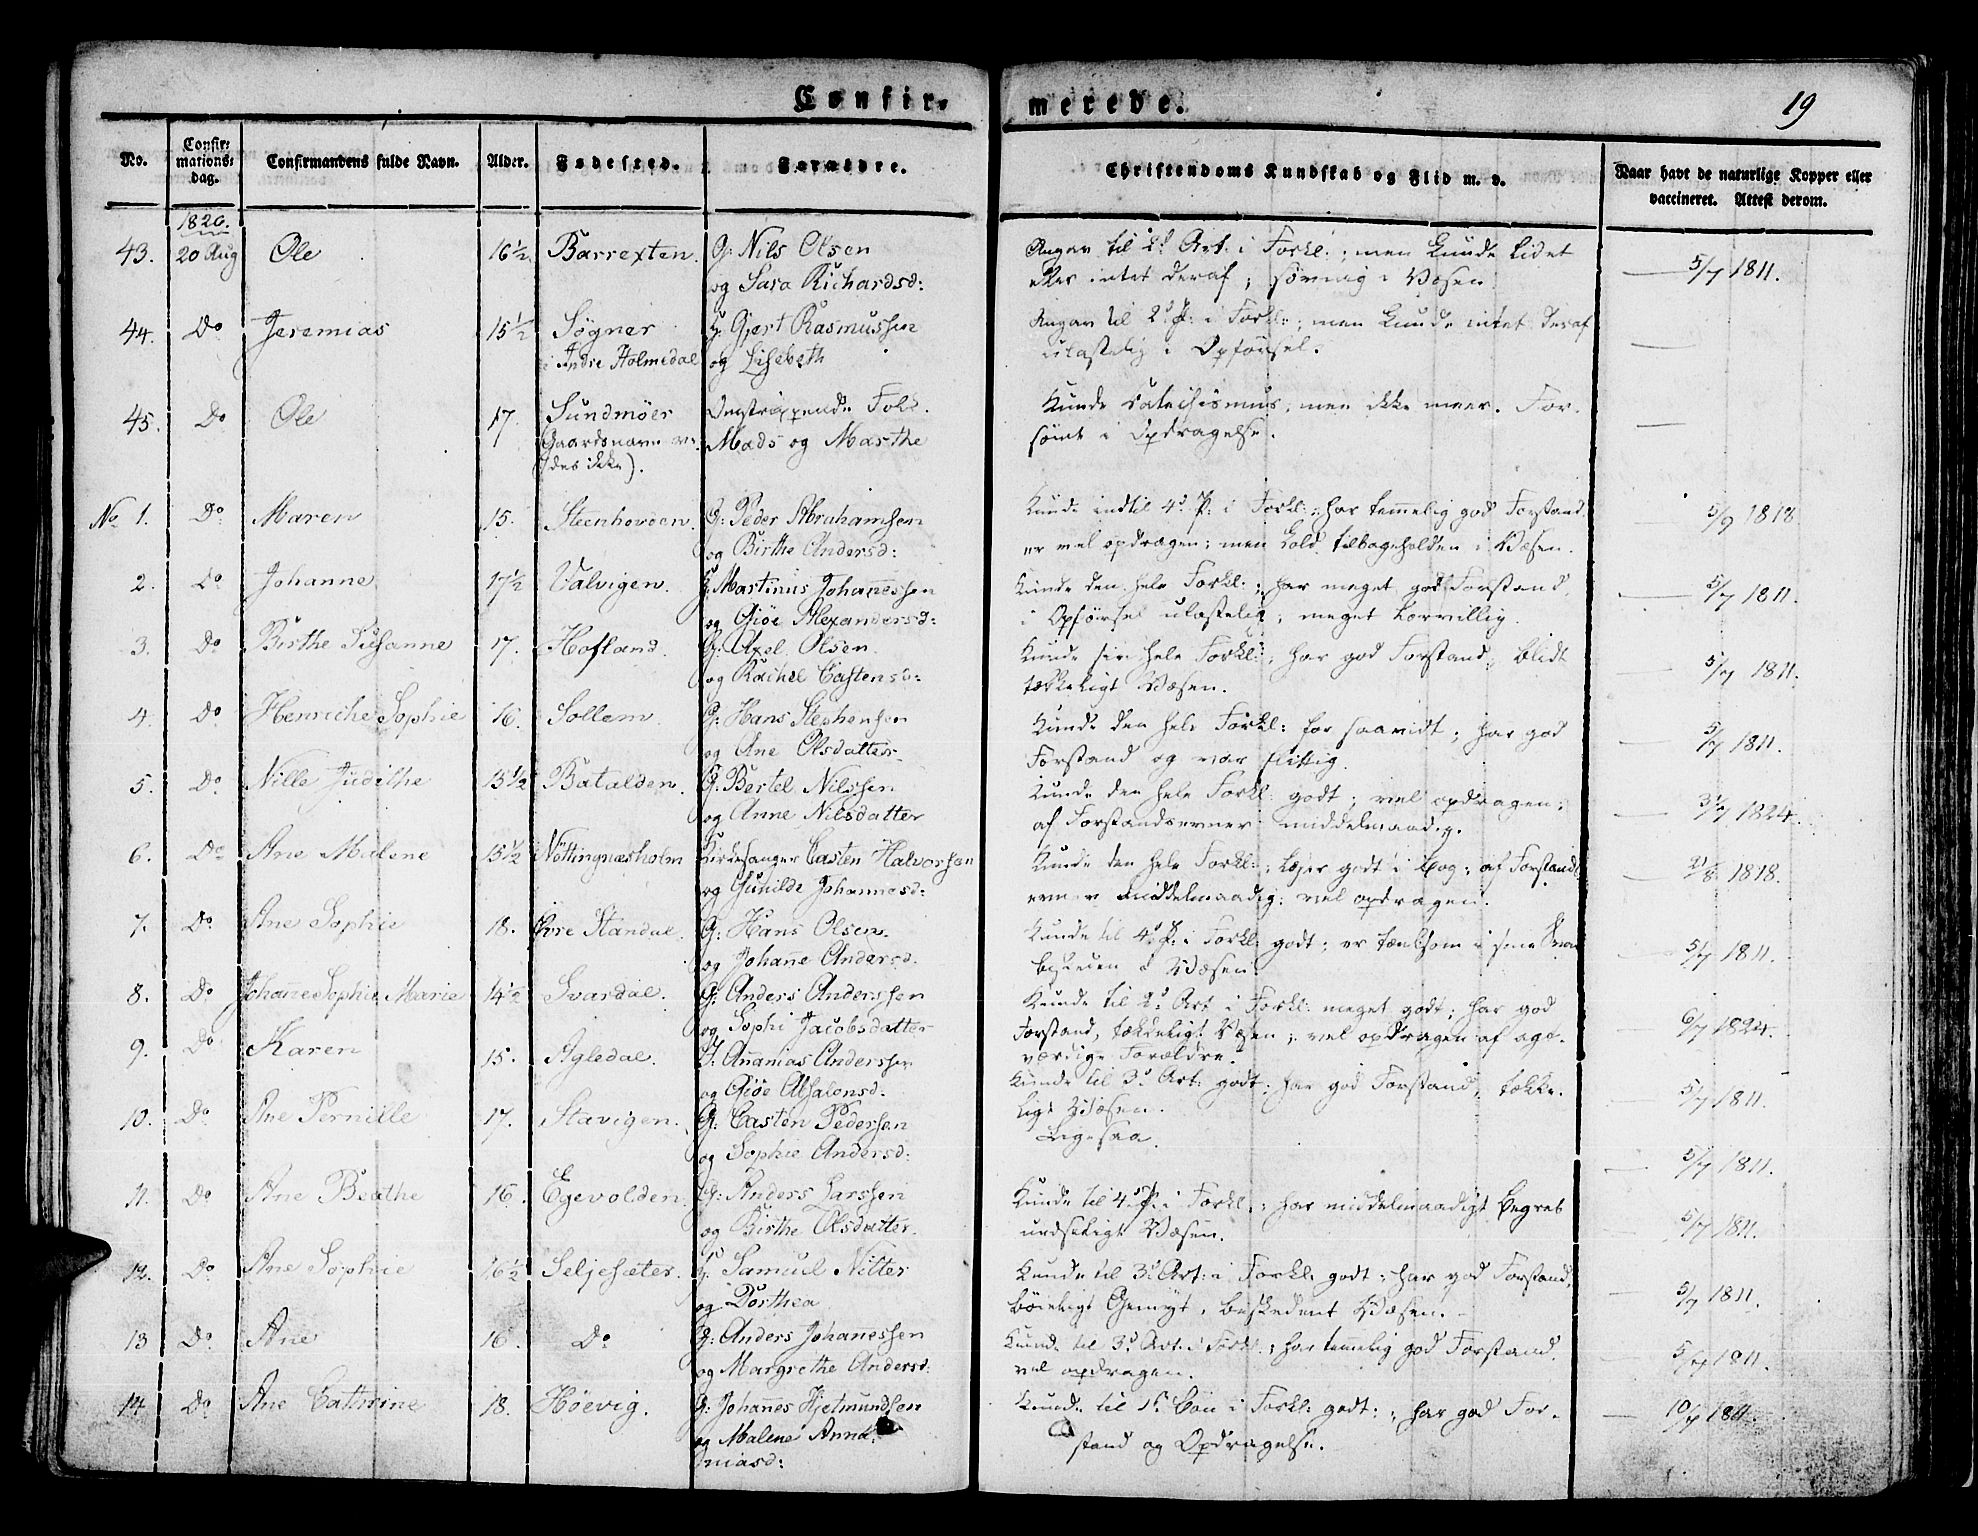 Confir-
merede.
19
No.
Confir-
mations-
dag.
Confirmandens fulde Navn.
Alder.
Fødested.
Forældre.
Christendoms Kundskab og Flid m. v.
Naar havt de naturlige Kopper eller
vaccineret. Attest derom.
1826.
43. 20 Aug Ole 16½ Barrexten. G: Nils Olsen
og Sara Richardsd:
Angav til 2d Art: i Forkl:; men kunde lidet
eller intet deraf; søvnig i Væsen.
5/7 1811.
44. Do Jeremias 15½ Søgner
i Indre Holmedal
Gjert Rasmussen
og Lisebeth
Angav til 2d P: i Forkl:; men kunde intet deraf
ulastelig i Opførsel.
45. Do Ole 17. Sundmøer
(Gaardsnavn vi-
des ikke).
Omstrippende Folk.
Mads og Marthe
Kunde Catechismus, men ikke meer. For-
sømt i Opdragelse.
No 1. Do Maren 15. Steenhovden. G: Peder Abrahamsen
og Birthe Andersd:
Kunde indtil 4d P: i Forkl:; har temmelig god Forstand
er vel opdragen; men kold tilbageholden i Væsen.
5/9 1818
2. Do Johanne 17½ Valvigen. Martinus Johannessen
og Giøe Alexandersd:
Kunde den hele Forkl:; har meget god Forstand,
i Opførsel ulastelig; meget lærvillig.
5/7 1811.
3. Do Birthe Susanne 17. Hofland. G: Axel Olsen.
og Rachel Castensd:
Kunde sin hele Forkl:; har god Forstand, blidt
tækkeligt Væsen.
5/7 1811.
4. Do Henriche Sophie 16. Sollem. G: Hans Stephensen
og Ane Olsdatter
Kunde den hele Forkl: for saavidt; har god
Forstand og var flittig.
5/7 1811.
5. Do Nille Judithe 15½ Batalden. G: Bertel Nilssen
og Anne Nilsdatter
Kunde den hele Forkl: godt; vel opdragen;
af Forstandsevner middelmaadig.
1824.
6. Do Ane Malene 15½ Nøttingnæsholm Kirkesanger Casten Halvorsen
og Gunilde Johannesd:
Kunde den hele Forkl:; læser godt i Bog; af Forstands
evner middelmaadig; vel opdragen.
1818.
7. Do Ane Sophie 18. Standal. G: Hans Olsen.
og Johanne Andersd.
Kunde til 4d P: i Forkl: godt; er tænksom i sine
beskeden i Væsen.
5/7 1811.
8. Do Johane Sophie Marie 14½ Svardal. G: Anders Andersen
og Sophi Jacobsdatter
Kunde til 2d Art i Forkl: meget godt; har god
Forstand, tækkeligt Væsen; vel opdragen af agt-
værdige Forældre.
6/7 1824.
9. Do Karen 15. Agledal. Ananias Andersen
og Giøe Absalonsd:
Kunde til 3d Art: godt; har god Forstand, tække-
ligt Væsen.
5/7 1811.
10. Do Ane Pernille 17. Stavigen. G: Casten Pedersen
og Sophie Andersd:
Ligesaa.
5/7 1811.
11. Do Ane Beathe 16. Egevolden. G: Anders Larssen
og Birthe Olsdatter
Kunde til 4d P: i Forkl:; har middelmaadigt Begreb
undseligt Væsen.
5/7 1811.
12. Do Ane Sophie 16½ Seljesæter. Samuel Nitter
og Dorthea
Kunde til 3d Art: i Forkl: godt; har god Forstand,
bøieligt Gemyt, beskedent Væsen.
5/7 1811.
13 Do Ane 16 Do G: Anders Johanessen
og Margrethe Andersd:
Kunde til 3d Art: i Forkl:; har temmelig god Forstand.
vel opdragen.
5/7 1811.
14 Do Ane Cathrine 18. Høevig. G: Johanes Hjelmundsen
og Malene Anna-
niasd:
Kunde til 1ste Bøn i Forkl: godt; har god For-
stand og Opdragelse.
10/7 1811.